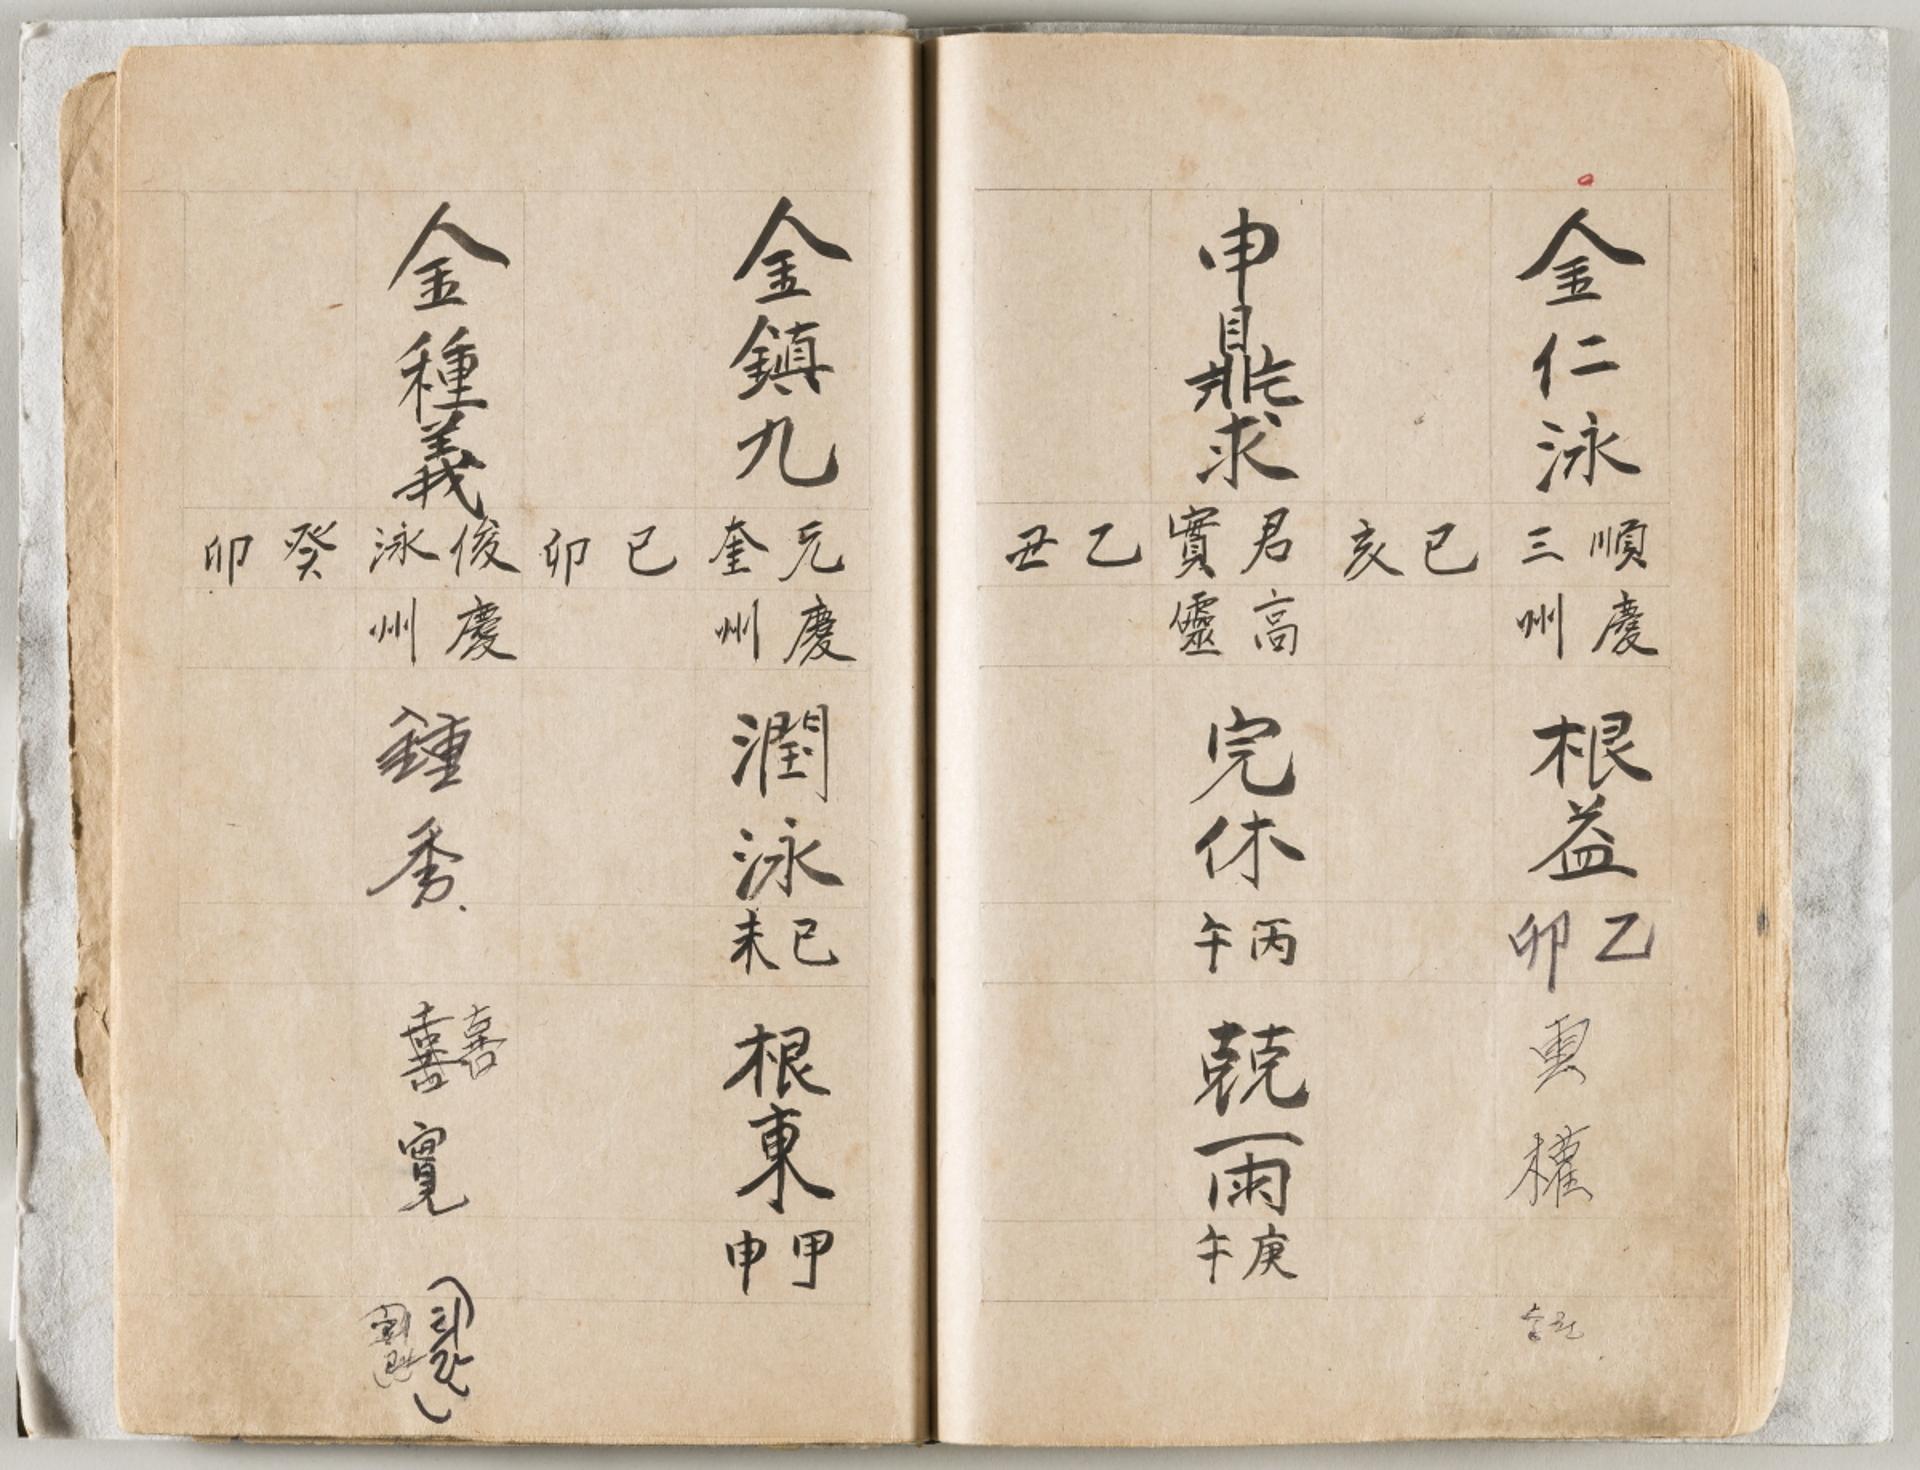 金仁泳
順三
慶州
己亥
根益
乙卯
雲權
申鼎求
君實
高靈
乙丑
完休
丙午
兢雨
庚午
金鎮九
元奎
慶州
己卯
潤泳
己未
根東
甲申
金種義
俊泳
慶州
癸卯
鍾秀
喜寬
(희관)